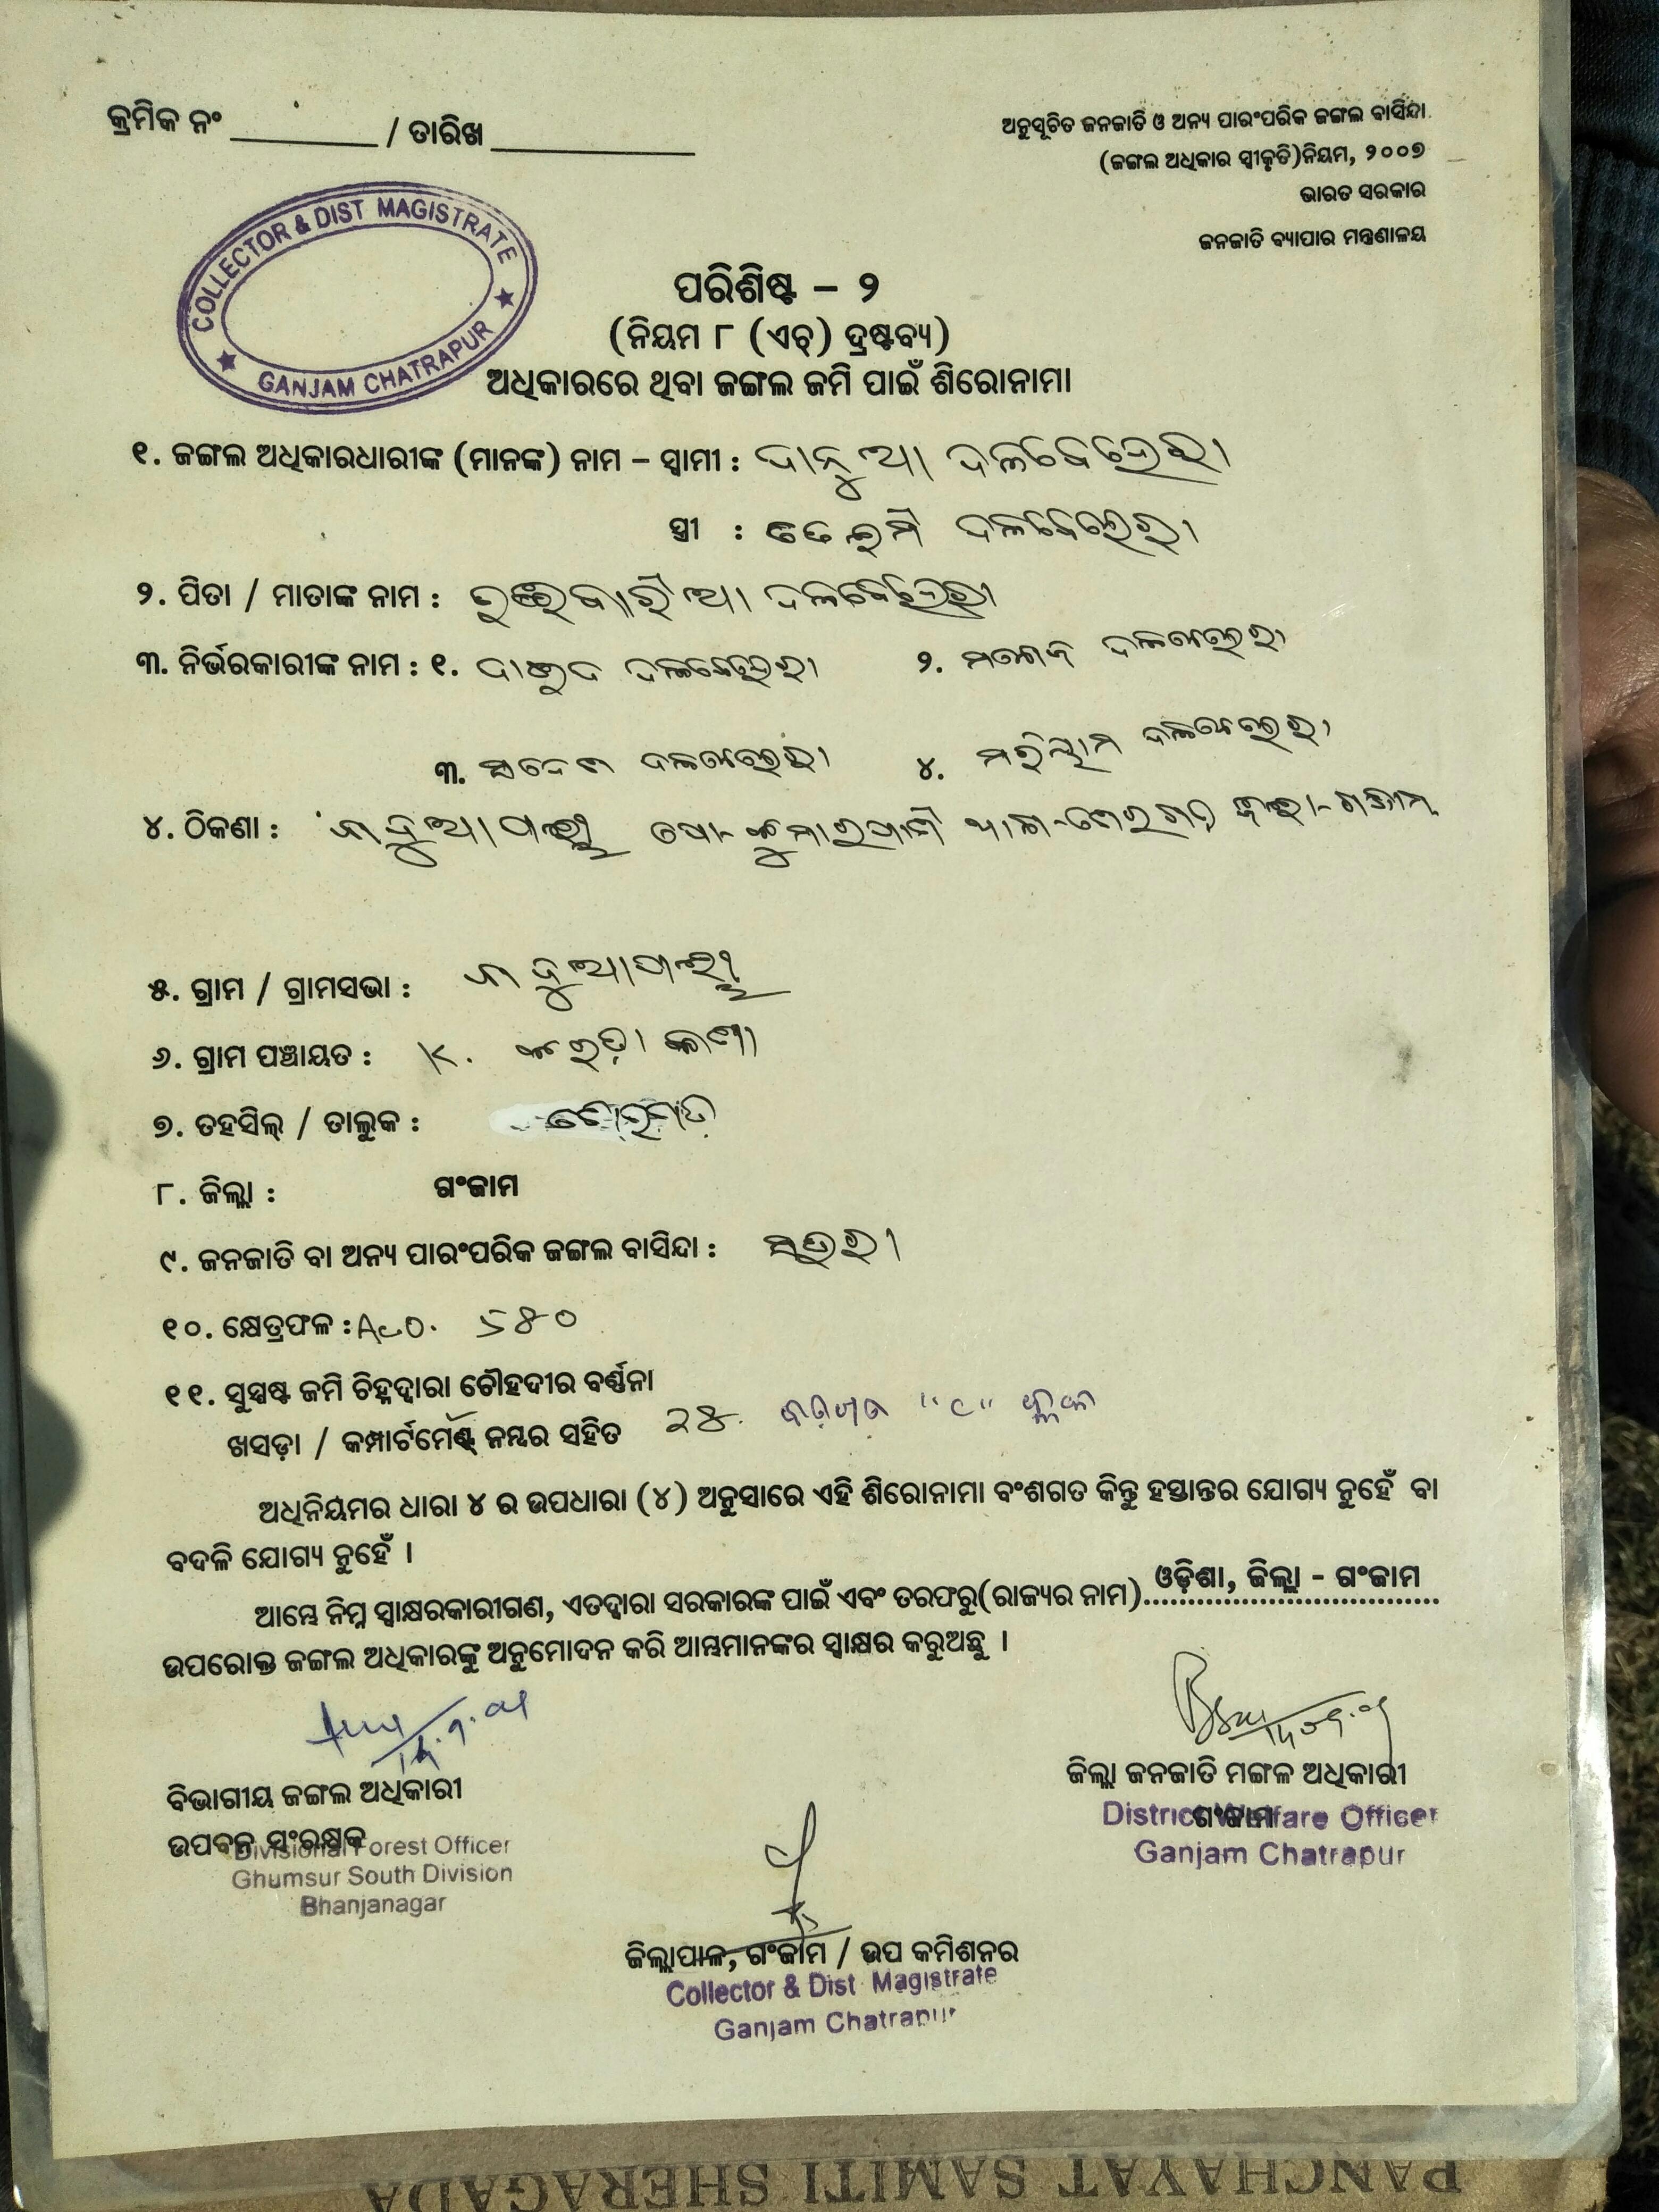 କ୍ରମିକ ନଂ ________ / ତାରିଖ ___________
ଅନୁସୂଚିତ ଜନଜାତି ଓ ଅନ୍ୟ ପାରଂପରିକ ଜଙ୍ଗଲ ବାସିନ୍ଦା
(ଜଙ୍ଗଲ ଅଧିକାର ସ୍ୱୀକୃତି)ନିୟମ, ୨୦୦୭
ଭାରତ ସରକାର
ଜନଜାତି ବ୍ୟାପାର ମନ୍ତ୍ରଣାଳୟ
COLLECTOR & DIST MAGISTRATE
★ GANJAM CHATRAPUR ★
ପରିଶିଷ୍ଟ – ୨
(ନିୟମ ୮ (ଏଚ୍) ଦ୍ରଷ୍ଟବ୍ୟ)
ଅଧିକାରରେ ଥିବା ଜଙ୍ଗଲ ଜମି ପାଇଁ ଶିରୋନାମା
୧. ଜଙ୍ଗଲ ଅଧିକାରଧାରୀଙ୍କ (ମାନଙ୍କ) ନାମ – ସ୍ୱାମୀ : ଦାନୁଆ ଦଳବେହେରା
ସ୍ତ୍ରୀ : ଦଳବେହେରା
୨. ପିତା / ମାତାଙ୍କ ନାମ : ଦଳବେହେରା
୩. ନିର୍ଭରକାରୀଙ୍କ ନାମ : ୧. ଦଳବେହେରା ୨. ମନୋଜ ଦଳବେହେରା
୩. ଦଳବେହେରା ୪. ଦଳବେହେରା
୪. ଠିକଣା : ପୋ- ଥାନା-ଶେରଗଡ଼ ଜିଲ୍ଲା-ଗଞ୍ଜାମ
୫. ଗ୍ରାମ / ଗ୍ରାମସଭା :
୬. ଗ୍ରାମ ପଞ୍ଚାୟତ : K.
୭. ତହସିଲ୍ / ତାଲୁକ : ଶେରଗଡ଼
୮. ଜିଲ୍ଲା : ଗଂଜାମ
୯. ଜନଜାତି ବା ଅନ୍ୟ ପାରଂପରିକ ଜଙ୍ଗଲ ବାସିନ୍ଦା :
୧୦. କ୍ଷେତ୍ରଫଳ : Ac୦.
୧୧. ସୁସ୍ପଷ୍ଟ ଜମି ଚିହ୍ନଦ୍ୱାରା ଚୌହଦୀର ବର୍ଣ୍ଣନା
ଖସଡ଼ା / କମ୍ପାର୍ଟମେଣ୍ଟ୍ ନମ୍ବର ସହିତ "C" ବ୍ଲକ
ଅଧିନିୟମର ଧାରା ୪ ର ଉପଧାରା (୪) ଅନୁସାରେ ଏହି ଶିରୋନାମା ବଂଶଗତ କିନ୍ତୁ ହସ୍ତାନ୍ତର ଯୋଗ୍ୟ ନୁହେଁ ବା
ବଦଳି ଯୋଗ୍ୟ ନୁହେଁ ।
ଆମ୍ଭେ ନିମ୍ନ ସ୍ୱାକ୍ଷରକାରୀଗଣ, ଏତଦ୍ୱାରା ସରକାରଙ୍କ ପାଇଁ ଏବଂ ତରଫରୁ(ରାଜ୍ୟର ନାମ) ଓଡ଼ିଶା, ଜିଲ୍ଲା - ଗଂଜାମ
ଉପରୋକ୍ତ ଜଙ୍ଗଲ ଅଧିକାରଙ୍କୁ ଅନୁମୋଦନ କରି ଆମ୍ଭମାନଙ୍କର ସ୍ୱାକ୍ଷର କରୁଅଛୁ ।
ବିଭାଗୀୟ ଜଙ୍ଗଲ ଅଧିକାରୀ
ଉପବନ ସଂରକ୍ଷକ
Divisional Forest Officer
Ghumsur South Division
Bhanjanagar
ଜିଲ୍ଲା ଜନଜାତି ମଙ୍ଗଳ ଅଧିକାରୀ
ଗଂଜାମ
District Welfare Officer
Ganjam Chatrapur
ଜିଲ୍ଲାପାଳ, ଗଂଜାମ / ଉପ କମିଶନର
Collector & Dist Magistrate
Ganjam Chatrapur
PANCHAYAT SAMITI SHERAGADA